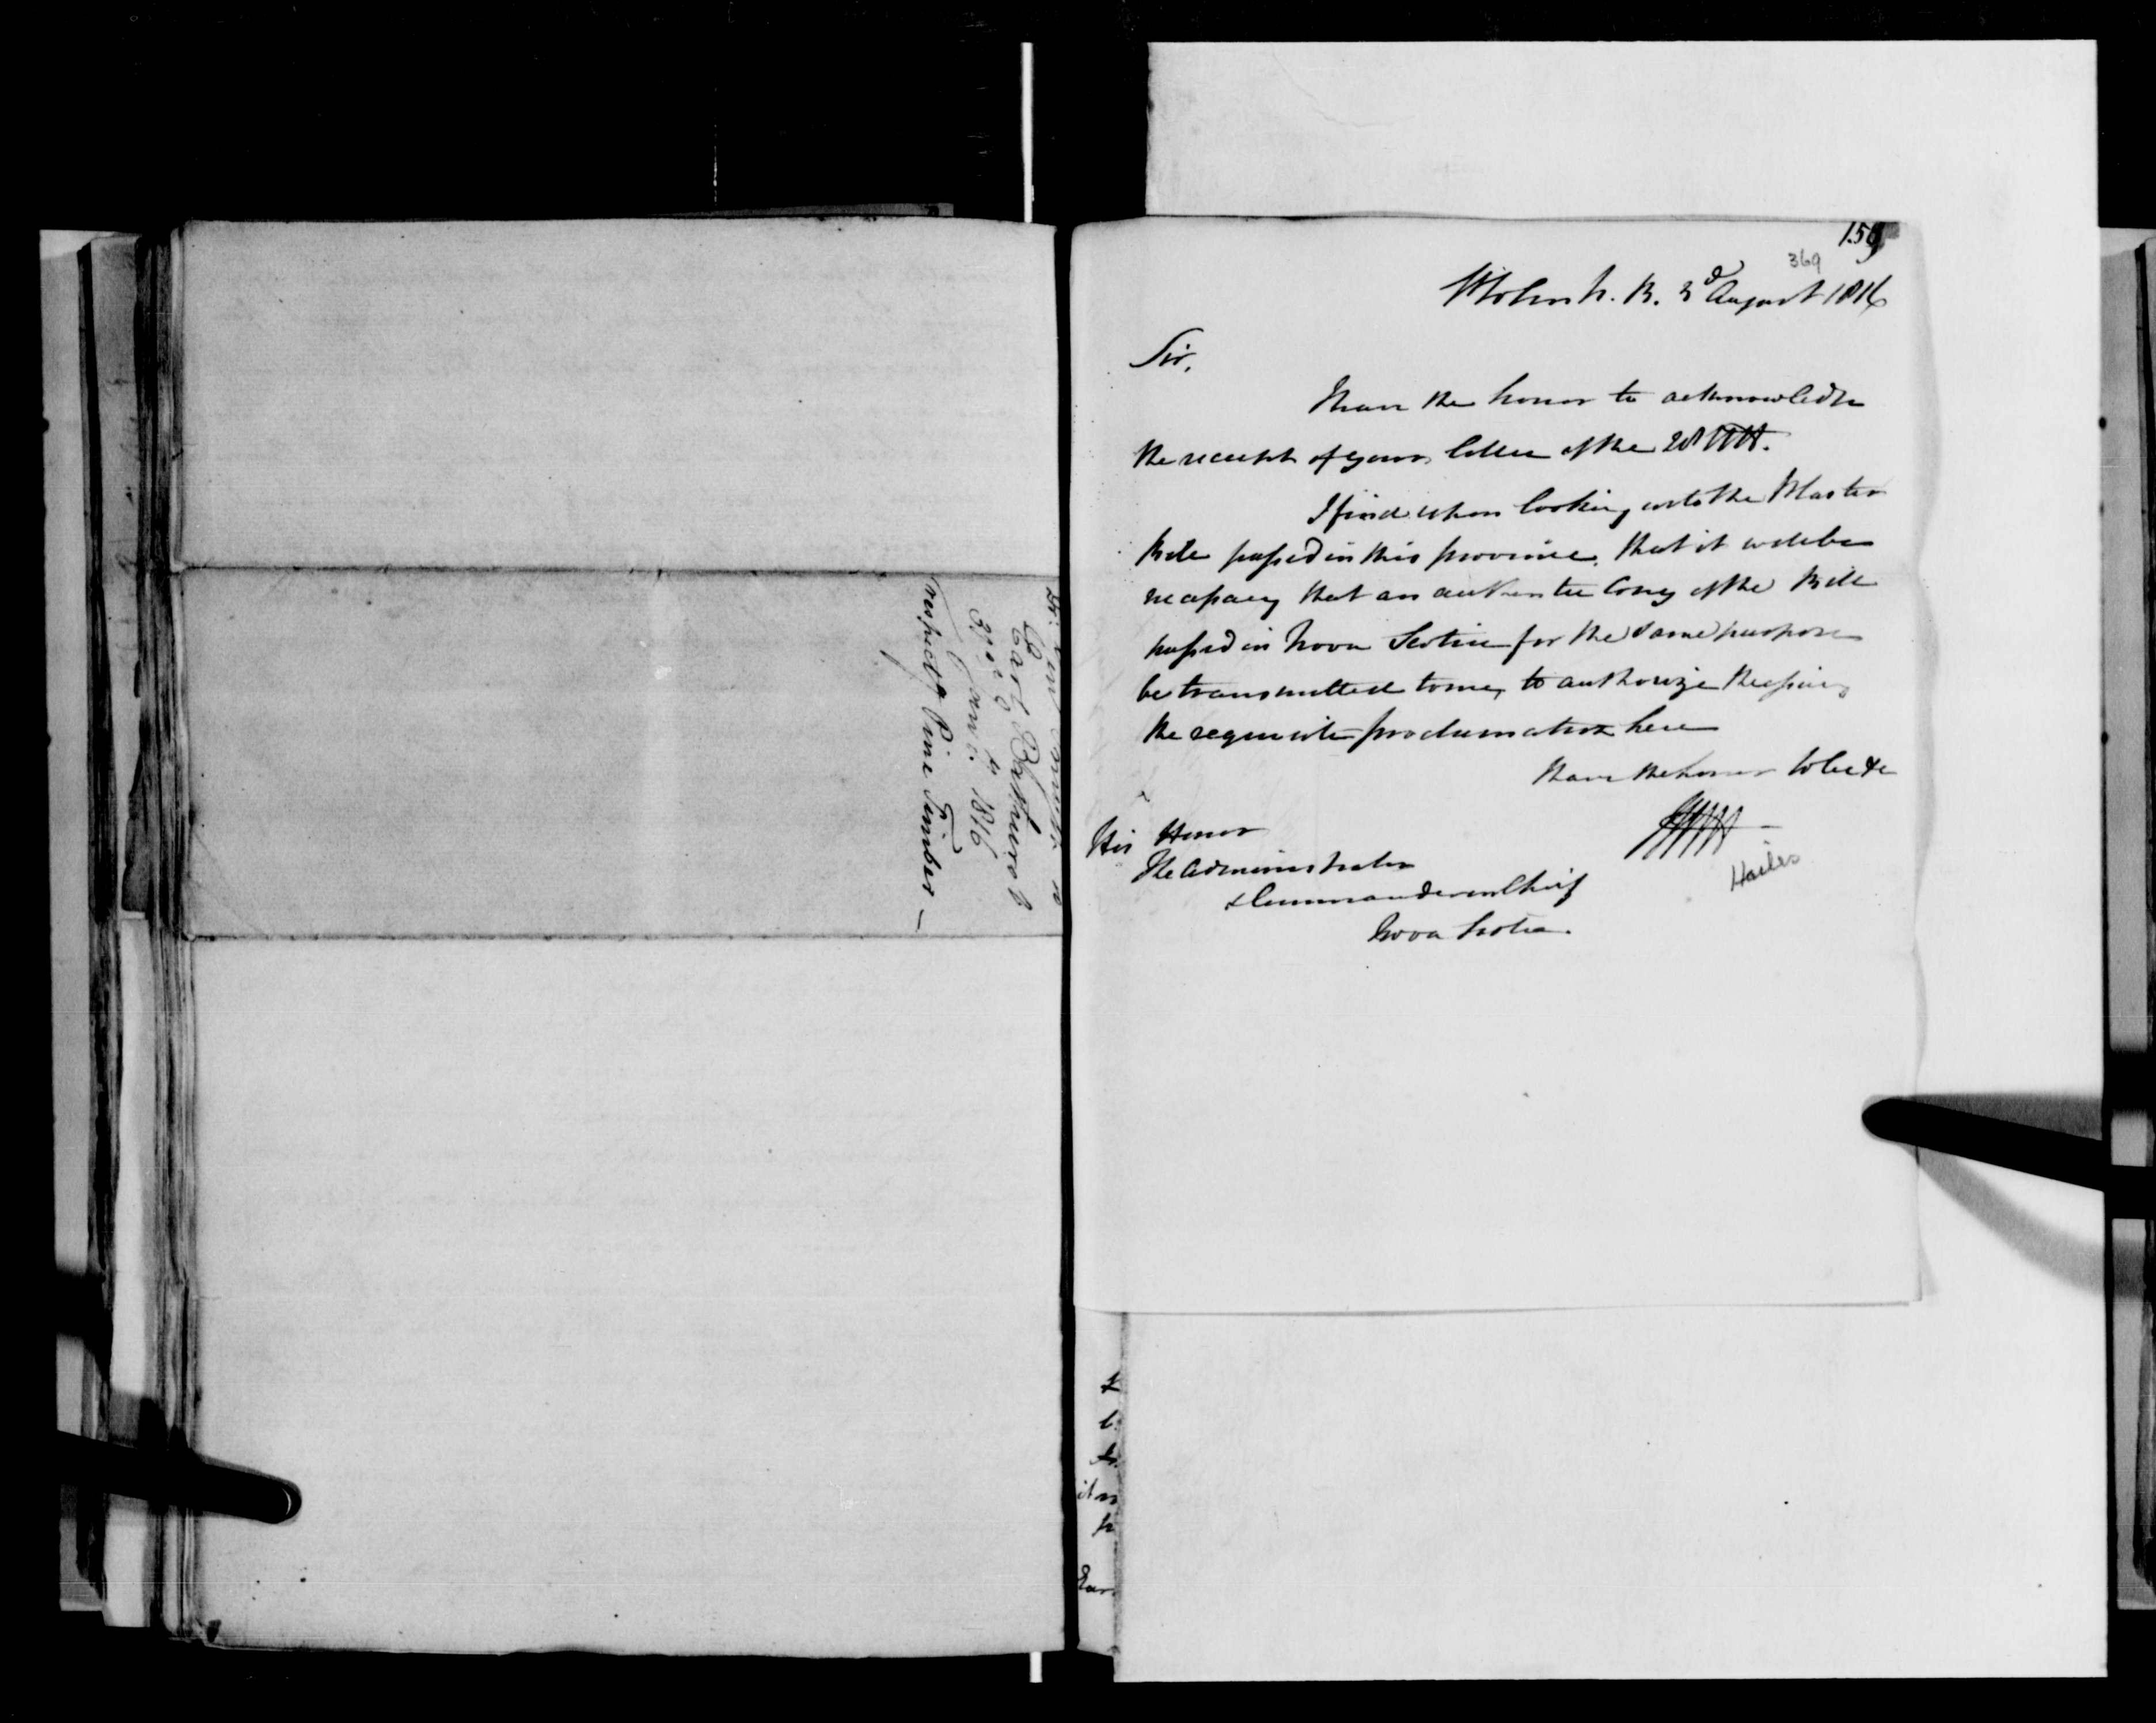 Earl Bathurst
3rd & 4th
Janry. 1816
respectg Pine Timber —
159
369
St John N. B. 3d August 1816
Sir,
I have the honor to acknowledge
the receipt of your letter of the 28 Ult.
I find upon looking into the Plaster
Bill passed in this province, that it will be
necessary that an authentic Copy of the Bill
passed in Nova Scotia for the same purpose
be transmitted to me, to authorize the issuing
the requisite proclamation here
I have the honor to be &c
His Honor
The Administrator
& Commander in Chief
Nova Scotia.
Hailes
it
Ear